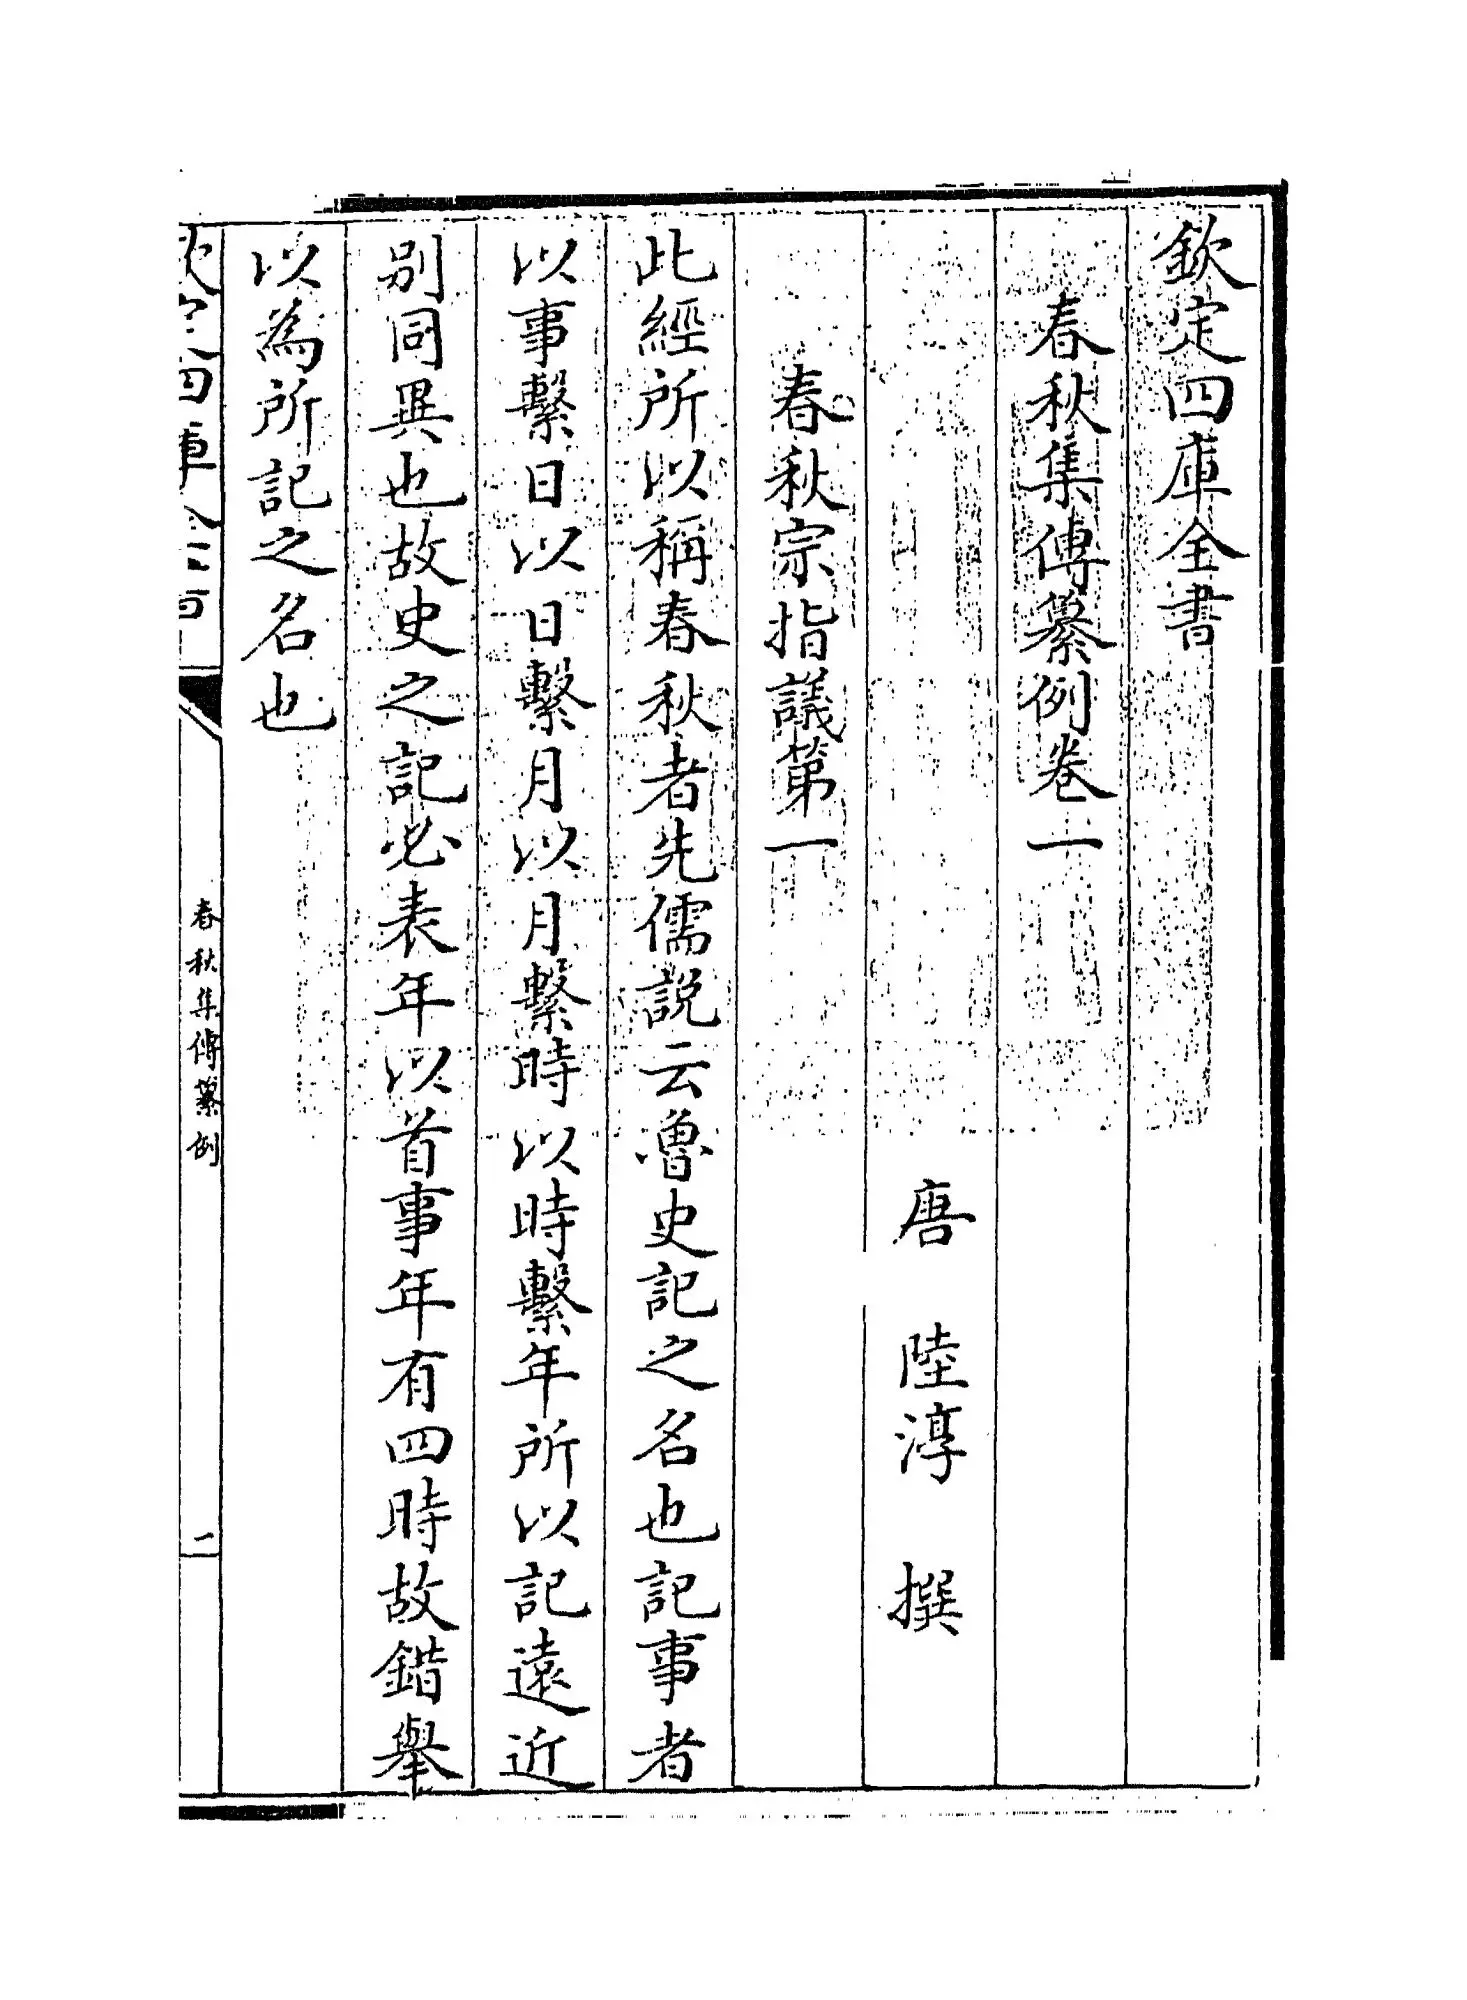 欽定四庫全書
春秋集傳纂例卷一
唐 陸淳 撰
春秋宗指議第一
此經所以稱春秋者先儒説云魯史記之名也記事者
以事繫日以日繫月以月繫時以時繫年所以記遠近
别同異也故史之記必表年以首事年有四時故錯舉
以為所記之名也
欽定四庫全書
春秋集傳纂例
一